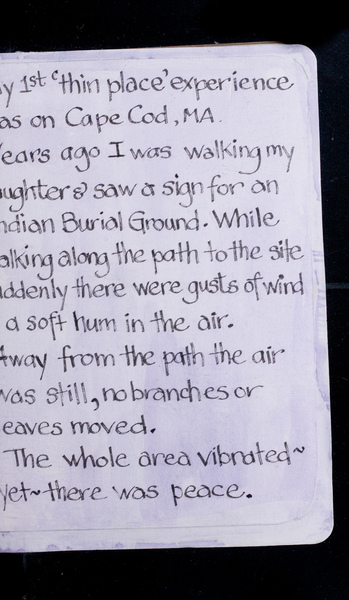 y 1st 'thin place' experience
as on Cape Cod, MA.
ears ago I was walking my
aughter & saw a sign for an
ndian Burial Ground. While
alking along the path to the site
uddenly there were gusts of wind
a soft hum in the air.
Away from the path the air
was still, no branches or
eaves moved.
The whole area vibrated~
yet~there was peace.